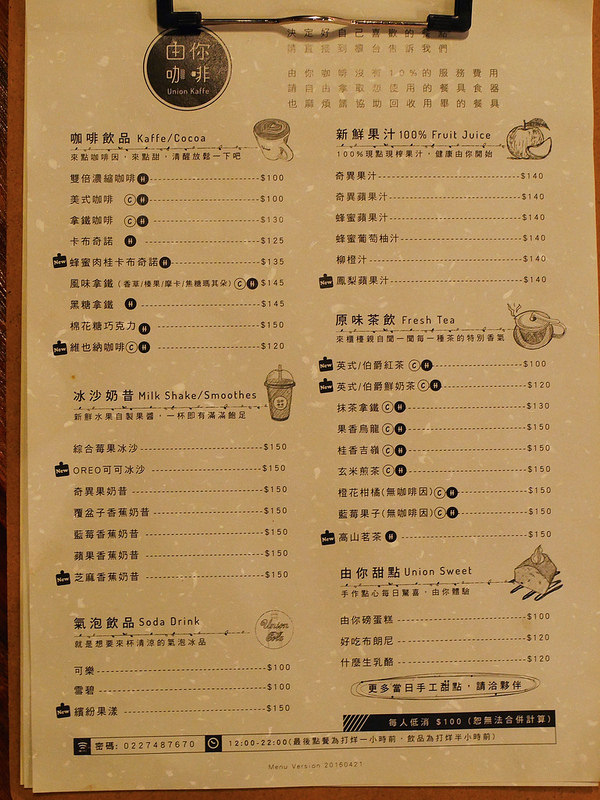 由你
咖啡
Union Kaffe
決定好自己喜歡的餐點
請直接到櫃台告訴我們
由你咖啡沒有10%的服務費用
請自由拿取想使用的餐具食器
也麻煩請協助回收用畢的餐具
咖啡飲品 Kaffe/Cocoa
來點咖啡因，來點甜，清醒放鬆一下吧
雙倍濃縮咖啡 H $100
美式咖啡 C H $100
拿鐵咖啡 C H $130
卡布奇諾 H $125
New 蜂蜜肉桂卡布奇諾 H $135
風味拿鐵 (香草/榛果/摩卡/焦糖瑪其朵) C H $145
黑糖拿鐵 H $145
棉花糖巧克力 H $150
New 維也納咖啡 C H $120
冰沙奶昔 Milk Shake/Smoothes
新鮮水果自製果醬，一杯即有滿滿飽足
綜合莓果冰沙 $150
New OREO可可冰沙 $150
奇異果奶昔 $150
覆盆子香蕉奶昔 $150
藍莓香蕉奶昔 $150
蘋果香蕉奶昔 $150
New 芝麻香蕉奶昔 $150
氣泡飲品 Soda Drink
就是想要來杯清涼的氣泡冰品
可樂 $100
雪碧 $100
New 繽紛果漾 $150
新鮮果汁 100% Fruit Juice
100%現點現榨果汁，健康由你開始
奇異果汁 $140
奇異蘋果汁 $140
蜂蜜蘋果汁 $140
蜂蜜葡萄柚汁 $140
柳橙汁 $140
New 鳳梨蘋果汁 $140
原味茶飲 Fresh Tea
來櫃檯親自聞一聞每一種茶的特別香氣
New 英式/伯爵紅茶 C H $100
New 英式/伯爵鮮奶茶 C H $120
抹茶拿鐵 C H $130
果香烏龍 C H $150
桂香吉嶺 C H $150
玄米煎茶 C H $150
橙花柑橘(無咖啡因) C H $150
藍莓果子(無咖啡因) C H $150
New 高山茗茶 H $150
由你甜點 Union Sweet
手作點心每日驚喜，由你體驗
由你磅蛋糕 $100
好吃布朗尼 $120
什麼生乳酪 $120
更多當日手工甜點，請洽夥伴
每人低消 $100 (恕無法合併計算)
密碼: 0227487670 12:00-22:00(最後點餐為打烊一小時前，飲品為打烊半小時前)
Menu Version 20160421